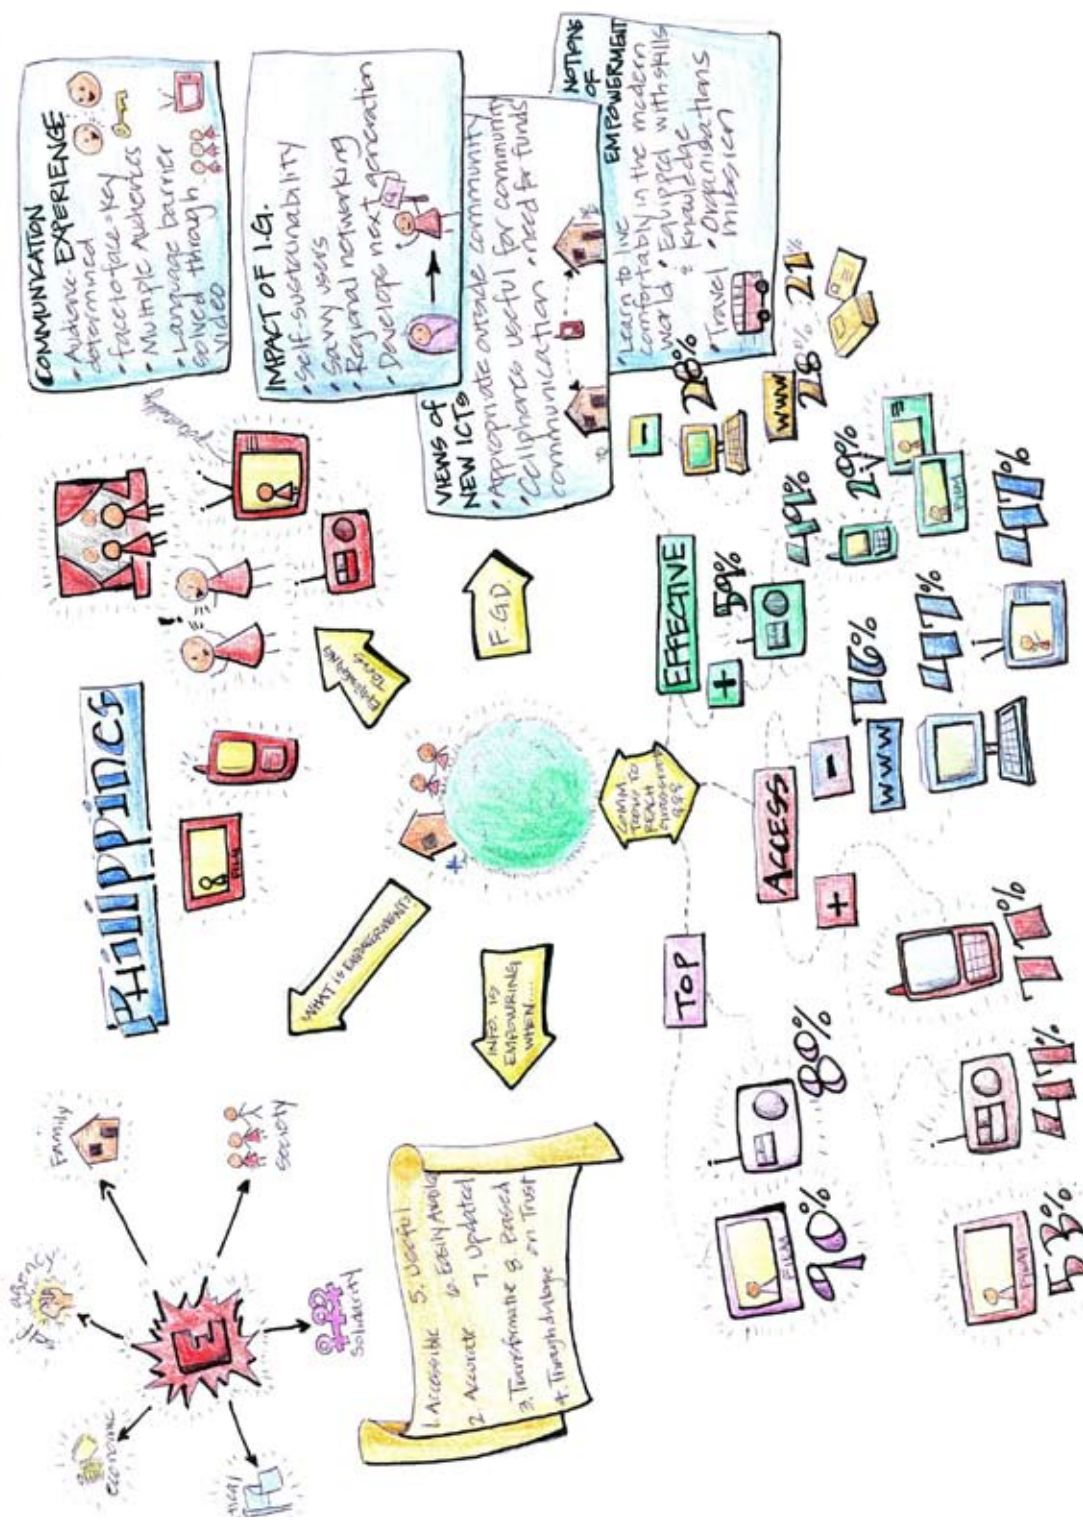 Phillippines
COMMUNICATION
EXPERIENCE
• Audience determined
• face to face = key
• Multiple Audiences
• Language barrier
solved through
video
IMPACT OF I.G.
• Self-sustainability
• Savvy users
• Regional networking
• Develops next generation
VIEWS of
NEW ICTs
• Appropriate outside community
• Cellphones useful for community
communication • need for funds
NOTIONS
OF
EMPOWERMENT
• Learn to live
comfortably in the modern
world • Equipped with skills
& knowledge
• Travel • Organisations
mission
FILM
EMPOWERING
TOOLS
F.G.D.
WHAT IS EMPOWERMENT?
INFO. IS
EMPOWRING
WHEN....
COMM
TOOLS TO
REACH
E
Family
society
Solidarity
economic
agency
1. Accessible
2. Accurate
3. Transformative
4. Through dialogue
5. Useful
6. Easily Available
7. Updated
8. Based
on Trust
TOP
FILM
90%
80%
ACCESS
+
FILM
53%
47%
77%
-
WWW
76%
47%
47%
EFFECTIVE
+
59%
49%
29%
FILM
-
28%
WWW
28%
21%